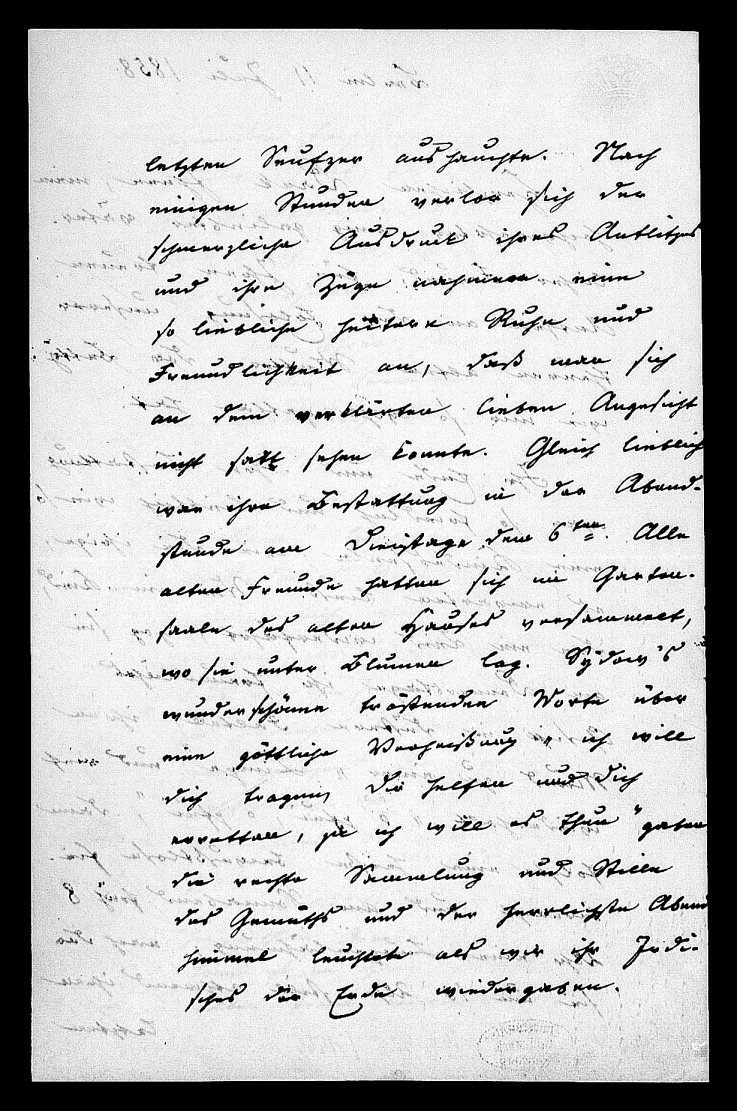 letzten Seufzer aushauchte. Nach
einigen Stunden verlor sich der
schmerzliche Ausdruck ihres Antlitzes
und ihre Züge nahmen eine
so liebliche heitere Ruhe und
Freundlichkeit an, daß man sich
an dem verklärten lieben Angesicht
nicht satt sehen konnte. Gleich lieblich
war ihre Bestattung in der Abend-
stunde am Dienstage dem 6ten. Alle
alten Freunde hatten sich im Garten-
saale des alten Hauses versammelt,
wo sie unter Blumen lag. Sydow's
wunderschöne tröstenden Worte über
eine göttliche Verheißung „ich will
dich tragen, dir helfen und dich
erretten, ja ich will es thun" gaben
die rechte Sammlung und Stille
des Gemüths und der herrlichste Abend
himmel leuchtete als wir ihr Irdi-
sches der Erde wiedergaben.